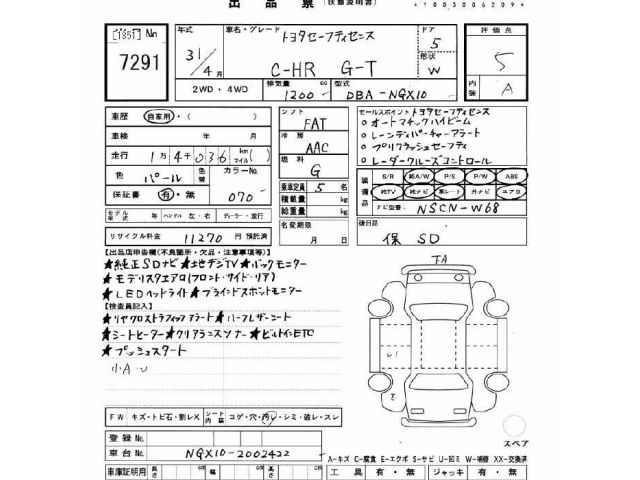 出 品 票 (状態説明書)
*10030062 09*
1651 No 7291
年式 31/4月
車名・グレード トヨタセーフティセンス
C-HR G-T
ドア 5
形状 W
評価点 5
内装 A
2WD・4WD
排気量 1200 cc
型式 DBA-NGX10
車歴 自家用・( )
シフト FAT
セールスポイント トヨタセーフティセンス
○オートマチックハイビーム
○レーンディパーチャーアラート
○プリクラッシュセーフティ
○レーダークルーズコントロール
車検 年 月
冷房 AAC
走行 1万4千036 km マイル( )
燃料 G
色 パール 色替
カラーNo. 070
保証書 有・無
乗車定員 5 名
積載量 kg
総重量 kg
装備品 S/R 純A/W P/S P/W ABS
純TV 純ナビ 革シート 外ナビ エアロ
ナビ型番 NSCN-W68
モデル年式 年 ハンドル 左・右 ディーラー・並行
リサイクル料金 11270 円 預託済
名変期限 月 日
後日品 保 SD
【出品店申告欄(不良箇所・欠品・注意事項等)】
★純正SDナビ ★地デジTV ★バックモニター
★モデリスタエアロ(フロント・サイド・リア)
★LEDヘッドライト ★ブラインドスポットモニター
【検査員記入】
★リヤクロストラフィックアラート ★ハーフレザーシート
★シートヒーター ★クリアランスソナー ★ビルトインETC
★プッシュスタート
小A・U
FW キズ・トビ石・割レX シート内装 コゲ・穴・汚レ・シミ・破レ・スレ
スペア
登録No.
車台No. NGX10-2002422
A-キズ C-腐食 E-エクボ S-サビ U-凹ミ W-補修 XX-交換済
車庫証明用 長さ cm 幅 cm 高さ cm
工具 有・無 ジャッキ 有・無